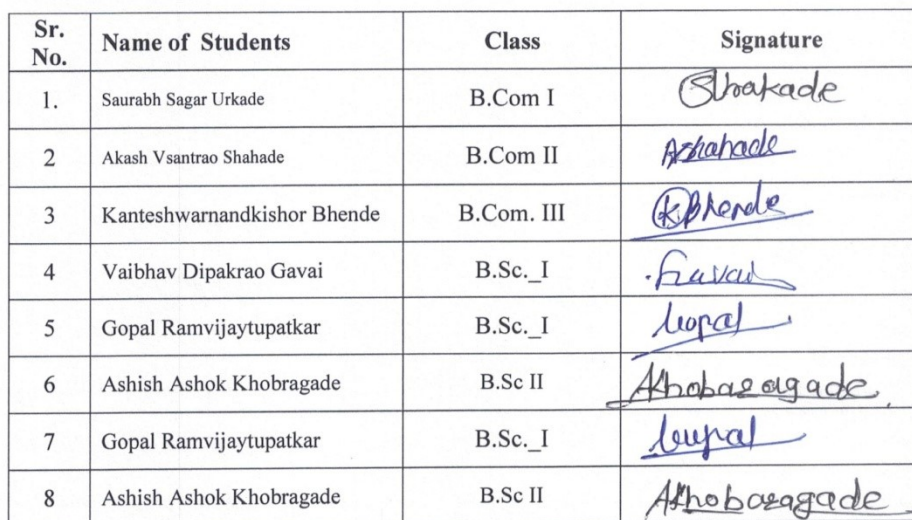 Sr. No. Name of Students Class Signature
1. Saurabh Sagar Urkade B.Com I
2 Akash Vsantrao Shahade B.Com II AShahade
3 Kanteshwarnandkishor Bhende B.Com. III KBhende
4 Vaibhav Dipakrao Gavai B.Sc._I Gavai
5 Gopal Ramvijaytupatkar B.Sc._I Gopal
6 Ashish Ashok Khobragade B.Sc II AKhobaragade
7 Gopal Ramvijaytupatkar B.Sc._I Gopal
8 Ashish Ashok Khobragade B.Sc II AKhobaragade